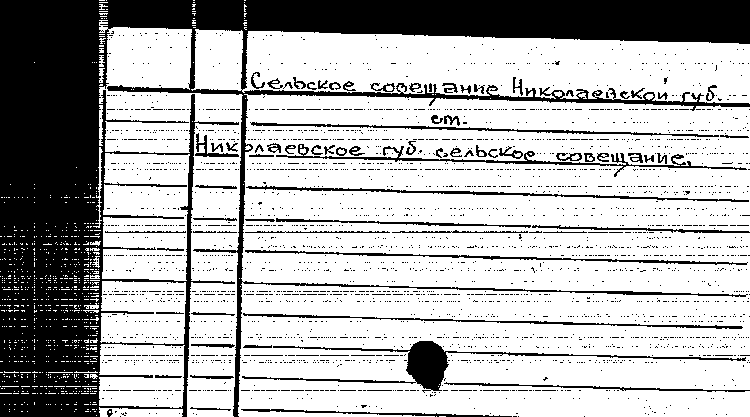 Сельское совещание Николаевской губ.
см.
Николаевское губ. сельское совещание.